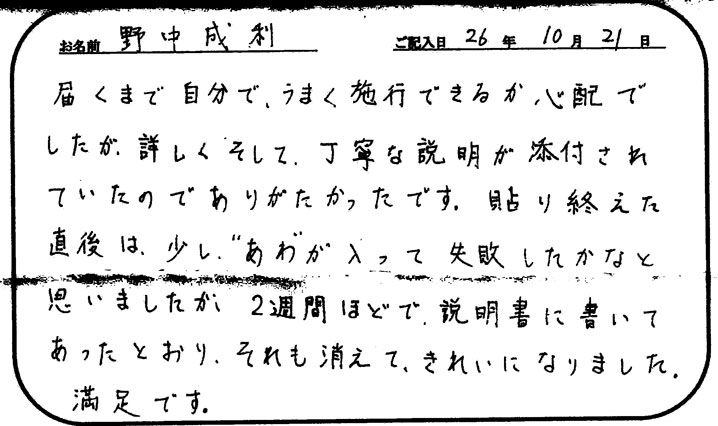 お名前 野中成利 ご記入日 26年 10月 21日
届くまで自分で、うまく施行できるか、心配で
したが、詳しくそして、丁寧な説明が添付され
ていたのでありがたかったです。貼り終えた
直後は、少し、“あわ”が入って失敗したかなと
思いましたが、2週間ほどで、説明書に書いて
あったとおり、それも消えて、きれいになりました。
満足です。